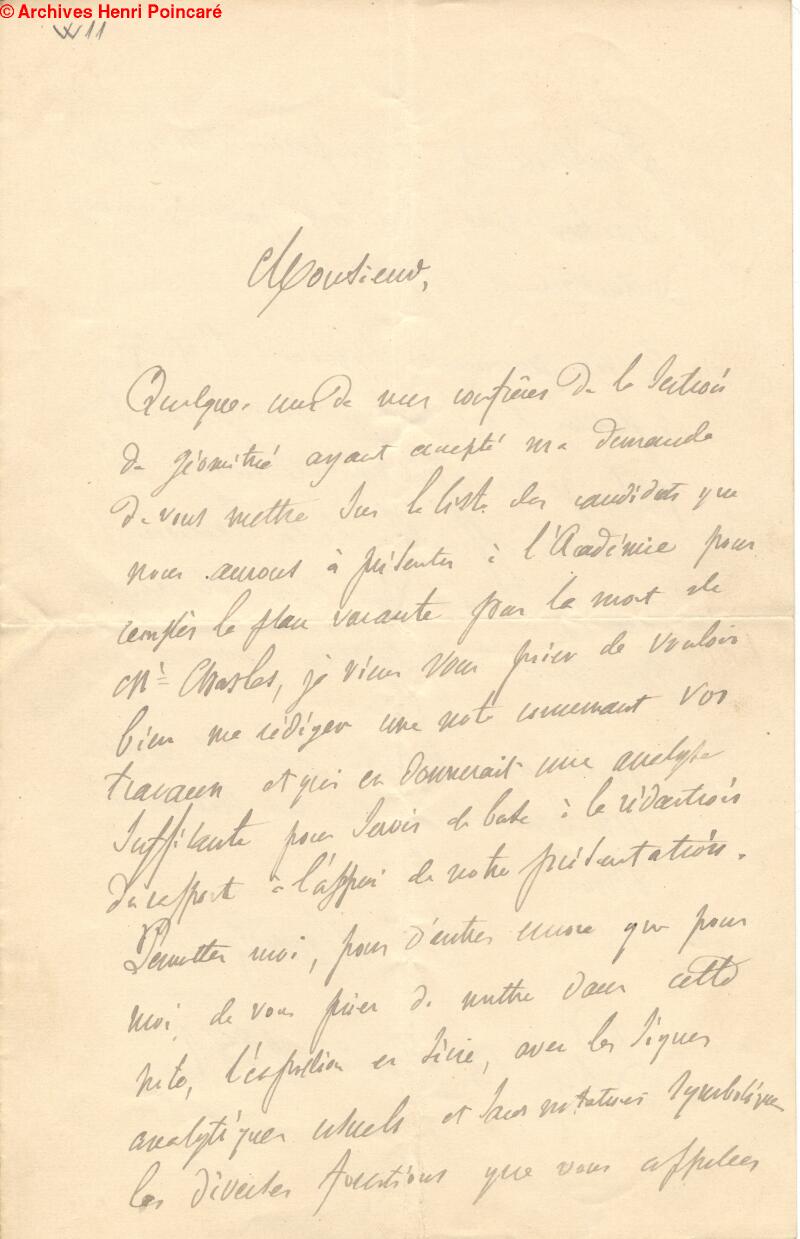 © Archives Henri Poincaré
W11
Monsieur,
Quelques uns de mes confrères de la Section
de géométrie ayant accepté ma demande
de vous mettre sur la liste des candidats que
nous aurons à présenter à l'Académie pour
remplir la place vacante par la mort de
Mr Chasles, je viens vous prier de vouloir
bien me rédiger une note concernant vos
travaux et qui en donnerait une analyse
suffisante pour servir de base à la rédaction
du rapport à l'appui de notre présentation.
Permettez moi, pour d'autres encore que pour
moi, de vous prier de mettre dans cette
note, l'expression en série, avec les signes
analytiques usuels et sans notations symboliques
les diverses fonctions que vous appelez